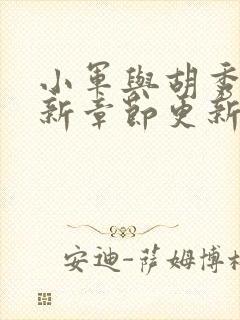 小軍與胡秀
新章節更新
安迪-薩姆博